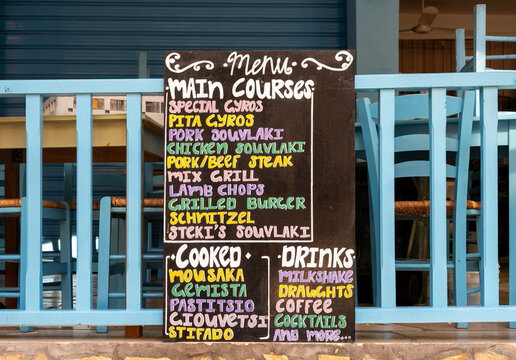 Menu
MAIN COURSES
SPECIAL GYROS
PITA GYROS
PORK SOUVLAKI
CHICKEN SOUVLAKI
PORK/BEEF STEAK
MIX GRILL
LAMB CHOPS
GRILLED BURGER
SCHNITZEL
STEKI'S SOUVLAKI
COOKED
MOUSAKA
GEMISTA
PASTITSIO
GIOUVETSI
STIFADO
DRINKS
MILKSHAKE
DRAUGHTS
COFFEE
COCKTAILS
AND MORE...